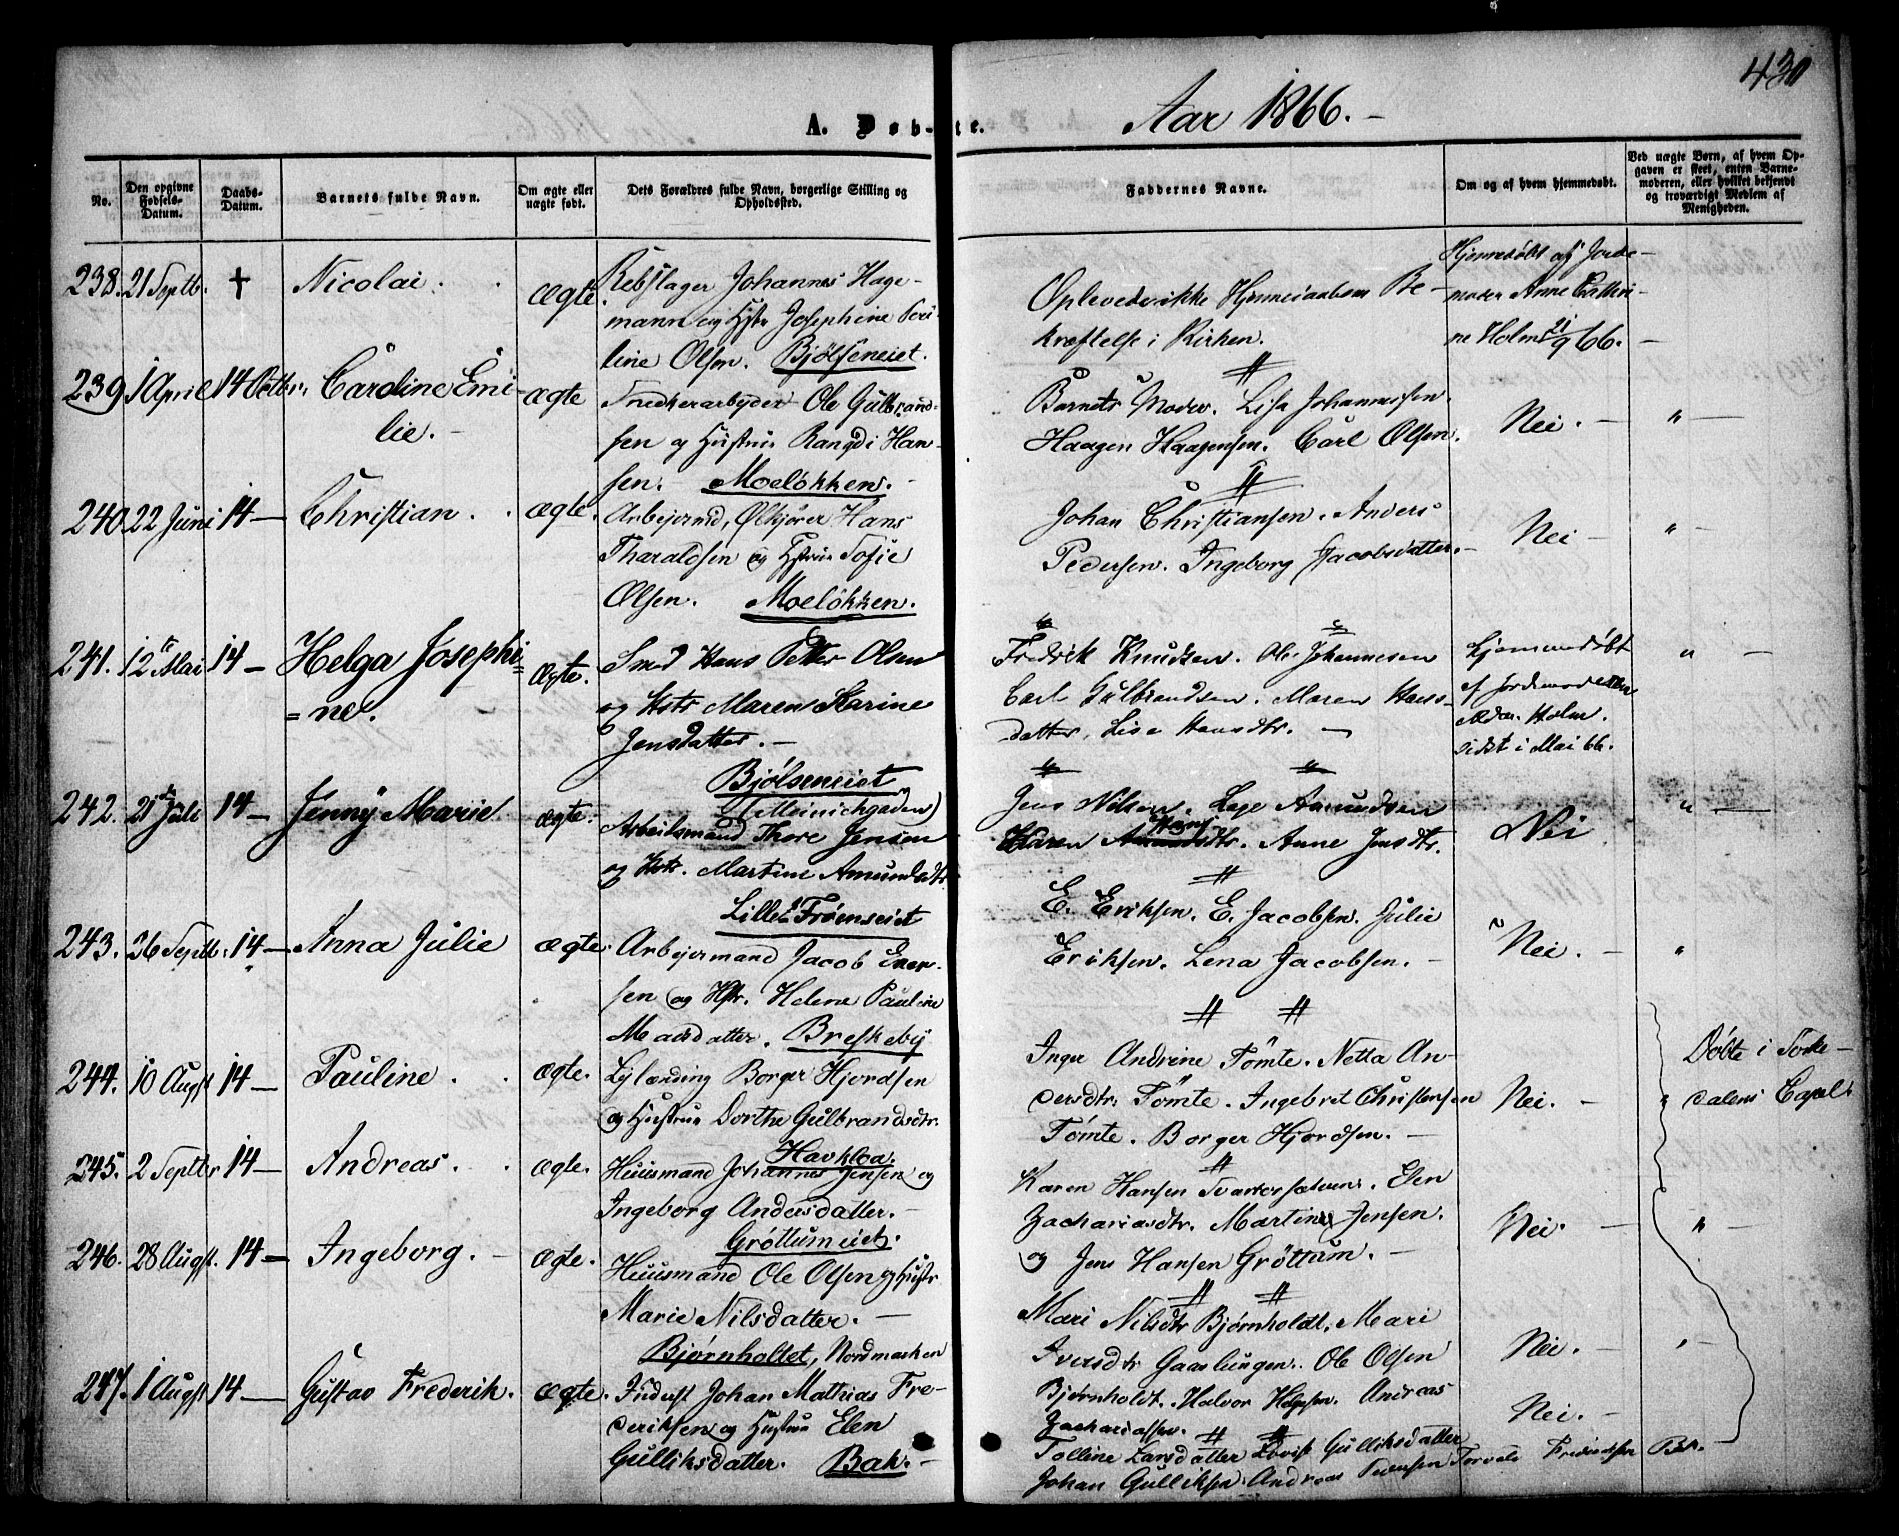 430
A. Døb-te. Aar 1866.-
No.
Den opgivne Fødsels-Datum.
Daabs-Datum.
Barnets fulde Navn.
Om ægte eller uægte født.
Dets Forældres fulde Navn, borgerlige Stilling og Opholdssted.
Faddernes Navne.
Om og af hvem hjemmedøbt.
Ved uægte Børn, af hvem Opgaven er skeet, enten Barnemoderen, eller hvilket bekjendt og troværdigt Medlem af Menigheden.
238. 21 Septb. † Nicolai. ægte.
Rebslager Johannes Hage-
mann og Hstr Josephine Peri-
line Olsen. Bjølseneiet.
Oplevede ikke Hjemmedaabens Be-
kræftelse i Kirken.
Hjemmedøbt af Jorde-
moder Anne Cathri-
ne Holm 21/9 66. -
239 1 April 14 Octbr. Caroline Emi-
lie. - ægte
Snedkerarbeider Ole Gulbrand-
sen og Hustru Rangdi Han-
sen. Moeløkken.
Barnets Moder. Lisa Johannessen.
Haagen Haagensen. Carl Olsen.
Nei. - " -
240. 22 Juni 14 - Christian. ægte.
Arbejsmd, Ølkjører Hans
Tharaldsen og Hstrue Sofie
Olsen. Moeløkken.
Johan Christiansen. Anders
Pedersen. Ingeborg Jacobsdatter. -
Nei - " -
241. 12te Mai 14 - Helga Josephi-
=ne. ægte.
Smed Hans Petter Olsen
og Hstr Maren Karine
Jensdatter. -
Bjølseneiet
Fredrik Knudsen. Ole Johannesen
Carl Gulbrandsen. Maren Hans-
datter, Lise Hansdtr. -
Hjemmedøbt
af Jordemoder
Holm.
sidst i Mai 66.
" -
242. 21 Juli 14 - Jenny Marie ægte.
(Meinichgaden)
Arbeidsmand Thore Jensen
og Hstr. Martine Amundsdtr.
Lille Frøenseiet
Jens Nilsen. Lage Amundsen
Karen Hansdtr. Anne Jensdtr.
Nei " -
243. 26 Septb. 14 - Anna Julie ægte.
Arbejermand Jacob Ener-
sen og Hstr. Helene Pauline
Madsdatter. Breskeby
E. Eriksen. E. Jacobsen. Julie
Eriksen. Lena Jacobsen. -
Nei. - "
244. 10 Augst 14 - Pauline. ægte.
Lejlænding Borger Hjordsen
og Hustrue Dorthe Gulbrandsdtr.
Havkloa.
Inger Andrine Tømte. Netta An-
dersdtr. Tømte. Ingebret Christensen
Tømte. Borger Hjordsen. -
Nei. - "
Døbte i Sørke-
dalens Capel.
245. 2 Septbr 14 - Andreas. ægte.
Huusmand Johannes Jensen og
Ingeborg Andersdatter. -
Grøttumeiet.
Karen Hansen Svartorsætren. Elen
Zachariasdtr. Martine Jensen.
og Jens Hansen Grøttum. -
Nei. - " -
246. 28 Augst. 14 - Ingeborg. - ægte.
Huusmand Ole Olsen og Hustr
Marie Nilsdatter. -
Bjørnholtet, Nordmarken
Mari Nilsdtr Bjørnholdt, Mari
Iversdtr Gaaslungen. Ole Olsen
Bjørnholdt. Halvor Helgesen. Andreas
Zachariassen.
Nei. - " -
247. 1 Augst 14 - Gustav Frederik. ægte.
Inderst Johan Mathias Fre-
deriksen og Hustrue Elen
Gulliksdatter. Bak. -
Tolline Larsdatter Lovise Gulliksdatter
Johan Gulliksen. Andreas Pedersen Torvald Fredriksen Bak.
Nei. -